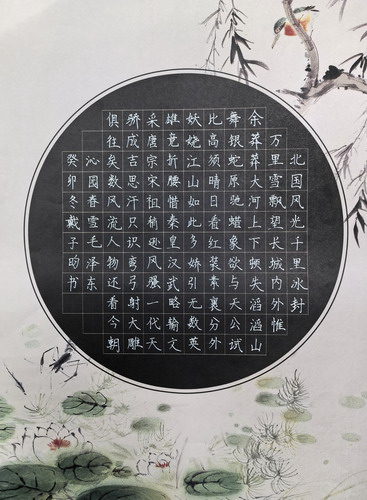 北国风光千里冰封
万里雪飘望长城内外惟
余莽莽大河上下顿失滔滔山
舞银蛇原驰蜡象欲与天公试
比高须晴日看红装素裹分外
妖娆江山如此多娇引无数英
雄竞折腰惜秦皇汉武略输文
采唐宗宋祖稍逊风骚一代天
骄成吉思汗只识弯弓射大雕
俱往矣数风流人物还看今朝
沁园春雪毛泽东
癸卯冬戴子昀书